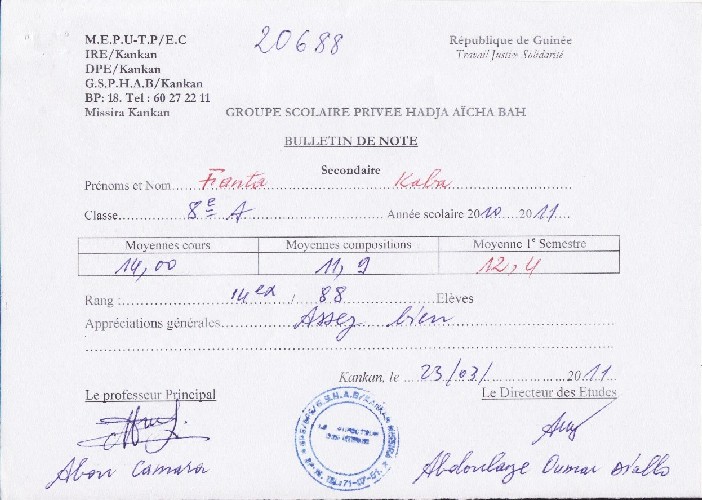 M.E.P.U-T.P/E.C
20688
République de Guinée
IRE/Kankan
Travail Justice Solidarité
DPE/Kankan
G.S.P.H.A.B/Kankan
BP: 18. Tel : 60 27 22 11
Missira Kankan
GROUPE SCOLAIRE PRIVEE HADJA AÏCHA BAH
BULLETIN DE NOTE
Secondaire
Prénoms et Nom.....Fanta Kaba
Classe.....8e A.....Année scolaire 2010....2011....
Moyennes cours Moyennes compositions : Moyenne 1e Semestre
14,00 11,9 12,4
Rang :.....14ex / 88.....Elèves
Appréciations générales.....Assez bien
Kankan, le ...23/03/.....2011...
Le professeur Principal Le Directeur des Etudes
Abou Camara Abdoulaye Oumar Diallo